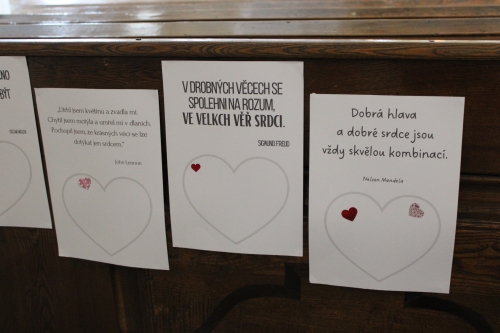 NO
BÝT
„Utrhl jsem květinu a zvadla mi.
Chytil jsem motýla a umřel mi v dlaních.
Pochopil jsem, že krásných věcí se lze
dotýkat jen srdcem."
John Lennon
V DROBNÝCH VĚCECH SE
SPOLEHNI NA ROZUM,
VE VELKCH VĚŘ SRDCI.
SIGMUND FREUD
Dobrá hlava
a dobré srdce jsou
vždy skvělou kombinací.
Nelson Mandela